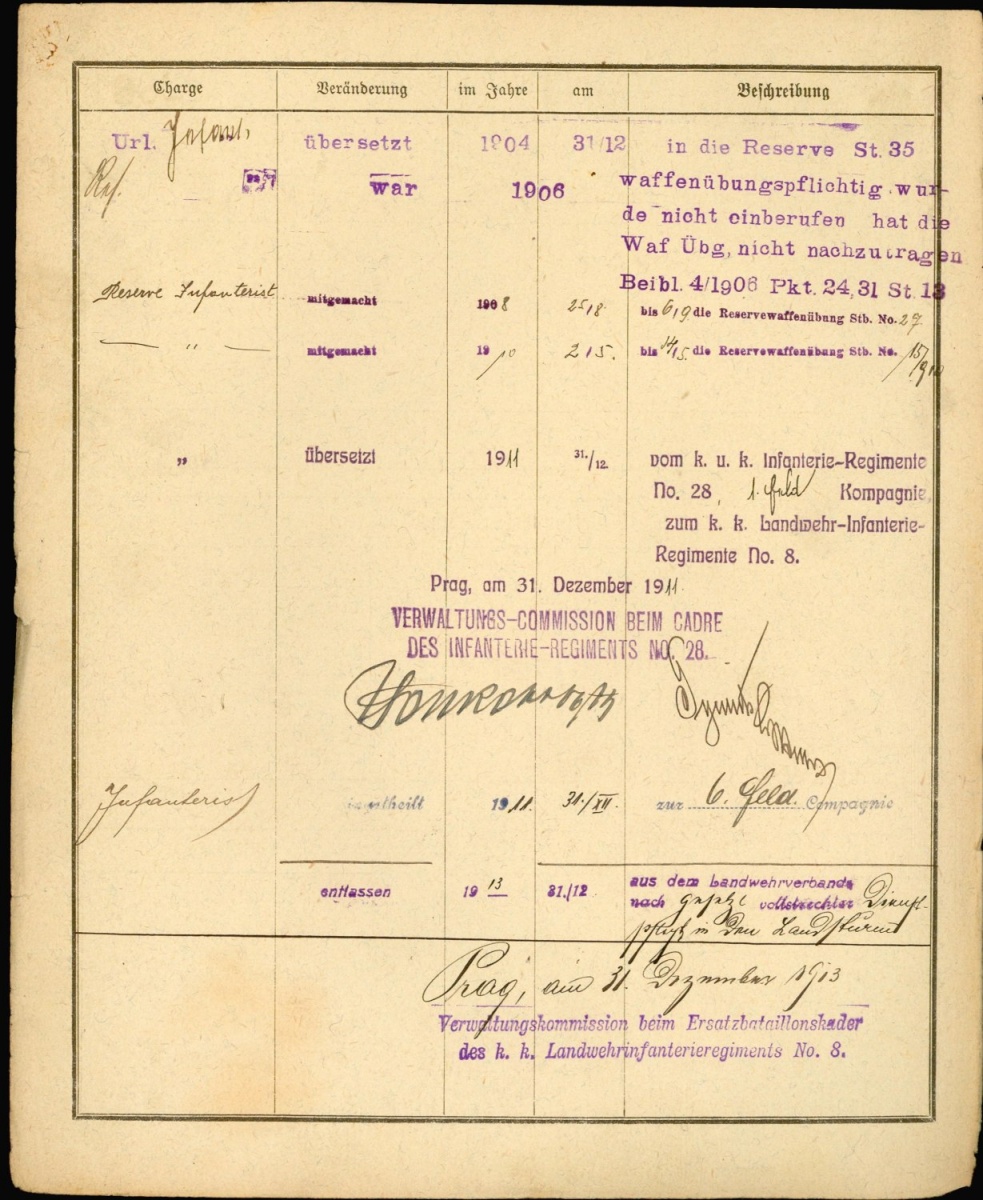 Charge Veränderung im Jahre am Beschreibung
Url. Infant. übersetzt 1904 31/12 in die Reserve St. 35
Res. war 1906 waffenübungspflichtig wur-
de nicht einberufen hat die
Waf Übg, nicht nachzutragen
Beibl. 4/1906 Pkt. 24,31 St. 13
Reserve Infanterist mitgemacht 1908 25/8 bis 6/9 die Reservewaffenübung Stb. No. 27
— " — mitgemacht 1910 2/5. bis 14/5. die Reservewaffenübung Stb. No. 15/910
" übersetzt 1911 31./12. vom k. u. k. Infanterie-Regimente
No. 28, 1. Feld Kompagnie,
zum k. k. Landwehr-Infanterie-
Regimente No. 8.
Prag, am 31. Dezember 1911.
VERWALTUNGS-COMMISSION BEIM CADRE
DES INFANTERIE-REGIMENTS NO. 28.
Infanterist 1911. 31./XII. zur 6. Feld. Compagnie
entlassen 1913 31./12 aus dem Landwehrverbande
nach gesetzl vollstreckter Dienst-
pflicht in den Landsturm
Prag, am 31. Dezember 1913
Verwaltungskommission beim Ersatzbataillonskader
des k. k. Landwehrinfanterieregiments No. 8.